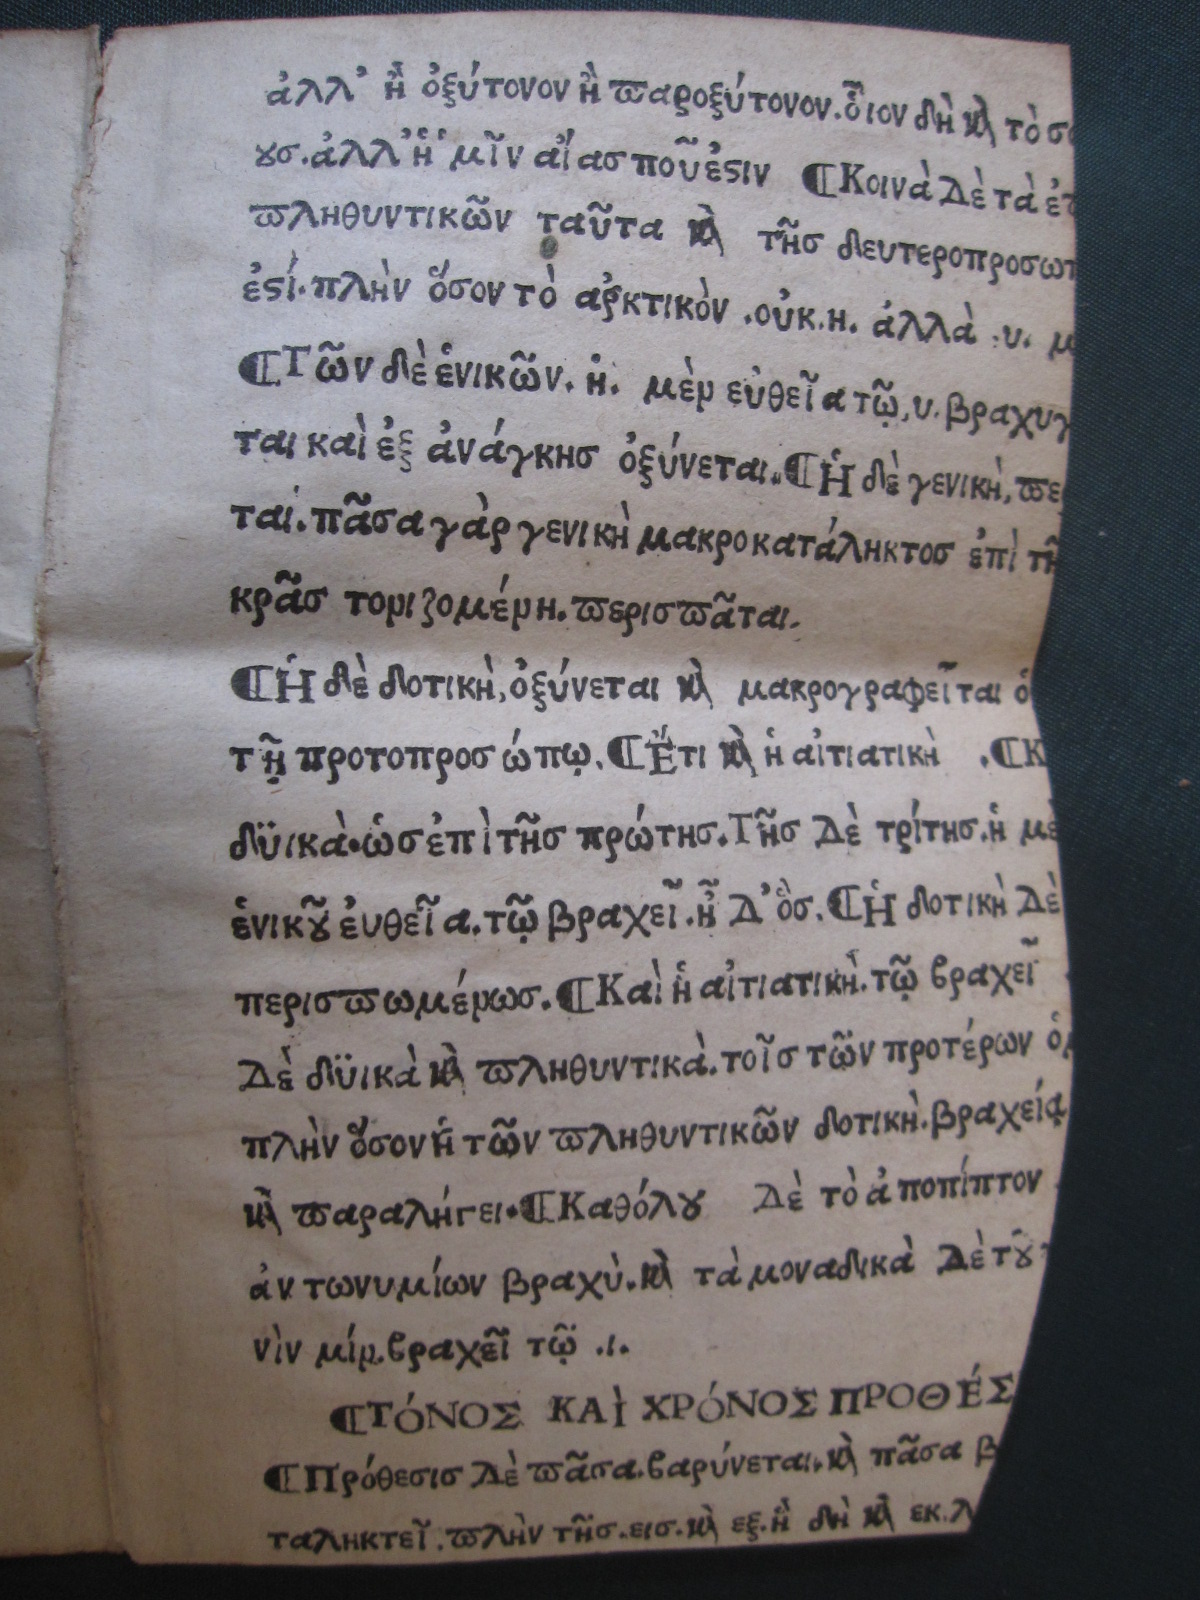 ἀλλ' ἢ ὀξύτονον ἢ παροξύτονον. οἷον δὴ καὶ τὸ
ȣσ. ἀλλ' ἡ μῖν αἴασ ποῦ ἐϛιν ¶Κοινὰ Δὲ τὰ
πληθυντικῶν ταῦτα καὶ τῆσ δευτεροπροσωπ
ἐϛί. πλὴν ὅσον τὸ αρκτικὸν . οὐκ. η. ἀλλὰ . υ. μ
¶Τῶν δὲ ἑνικῶν. ἡ. μὲν εὐθεῖα τῷ, υ. βραχυγ
ται καὶ ἐξ ἀνάγκησ ὀξύνεται. ¶Ἡ δὲ γενικὴ, πε
ταί. πᾶσα γὰρ γενικὴ μακροκατάληκτοσ ἐπὶ τῆ
κρᾶσ τονιζομένη. περισπᾶται.
¶Ἡ δὲ δοτικὴ, ὀξύνεται καὶ μακρογραφεῖται ὁ
τῇ προτοπροσώπῳ. ¶Ἔτι καὶ ἡ αἰτιατικὴ . ¶Κ
δϋικὰ. ὡσ ἐπὶ τῆσ πρώτησ. Τῆσ Δὲ τρίτησ. ἡ μὲ
ἑνικȣ͂ ἐυθεῖα. τῷ βραχεῖ. ἢ Δ' ὃσ. ¶Ἡ δοτικὴ Δὲ
περισπωμένωσ. ¶Καὶ ἡ αἰτιατικὴ. τῷ βραχεῖ
Δὲ δϋικὰ καὶ πληθυντικὰ. τοῖσ τῶν προτέρων
πλὴν ὅσον ἡ τῶν πληθυντικῶν δοτικὴ. βραχείᾳ
καὶ παραλήγει. ¶Καθόλȣ Δὲ τὸ ἀποπίπτον
ἀντωνυμίων βραχὺ. καὶ τὰ μοναδικὰ Δὲ τȣ͂
νὶν μίν. βραχεῖ τῷ .ι.
¶ΤΌΝΟΣ ΚΑῚ ΧΡΌΝΟΣ ΠΡΟΘΈΣ
¶Πρόθεσισ Δὲ πᾶσα. βαρύνεται. καὶ πᾶσα β
ταληκτεῖ. πλὴν τῆσ. εισ. καὶ εξ. ἢ δὴ καὶ εκ. λ